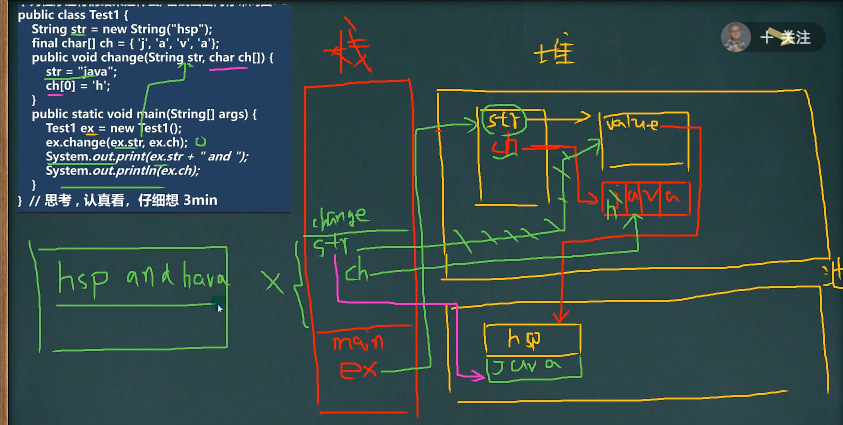 public class Test1 {
String str = new String("hsp");
final char[] ch = { 'j', 'a', 'v', 'a'};
public void change(String str, char ch[]) {
str = "java";
ch[0] = 'h';
}
public static void main(String[] args) {
Test1 ex = new Test1();
ex.change(ex.str, ex.ch);
System.out.print(ex.str + " and ");
System.out.println(ex.ch);
}
} // 思考，认真看，仔细想 3min
十 关注
栈
堆
str
ch
value
j a v a
h
change
str
ch
main
ex
hsp
java
hsp and hava